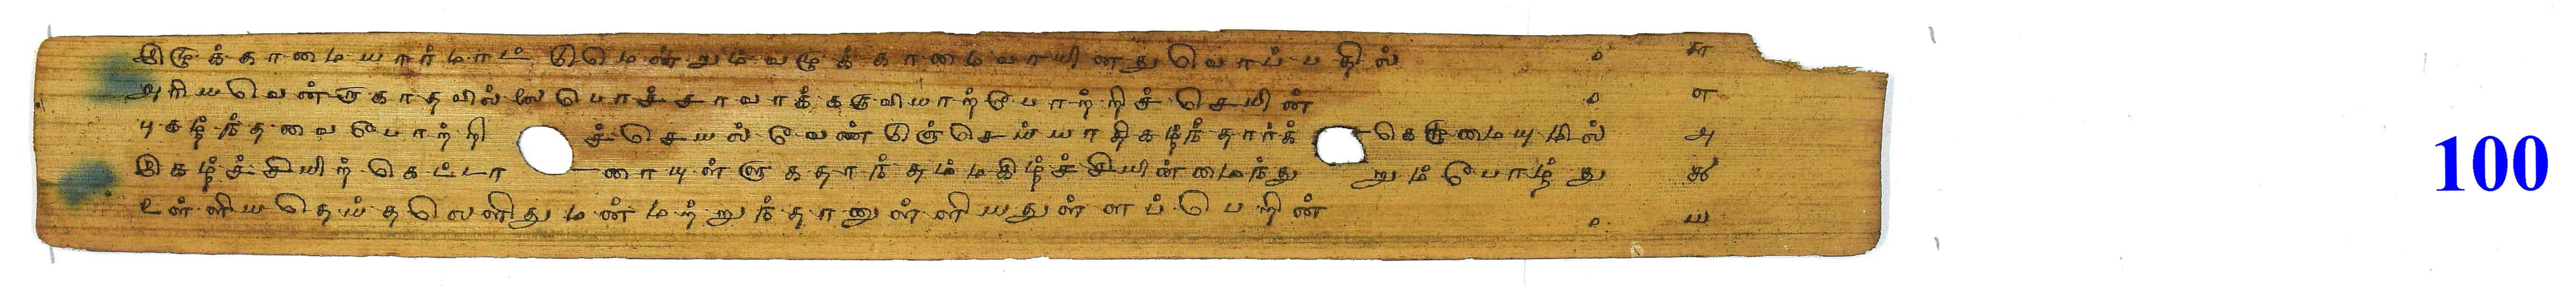 இழுக்காமையார்மாட் டுமென்றும்வழுக்காமைவாயினதுவொப்பதில் ௦ ௬
அரியவென்றாகாதவில்லைபொச்சாவாக்கருவியாற்போற்றிச்செயின் ௦ ௭
புகழ்ந்தவைபோற்றி ச்செயல்வேண்டுஞ்செய்யாதிகழ்ந்தார்க் கெழுமையுமில் ௮
இகழ்ச்சியிற்கெட்டா ரையுள்ளுகதாந்தம்மகிழ்ச்சியின்மைந்து றும்போழ்து ௯
உள்ளியதெய்தலெளிதுமன்மற்றுந்தானுள்ளியதுள்ளப்பெறின் ௦ ௰
100